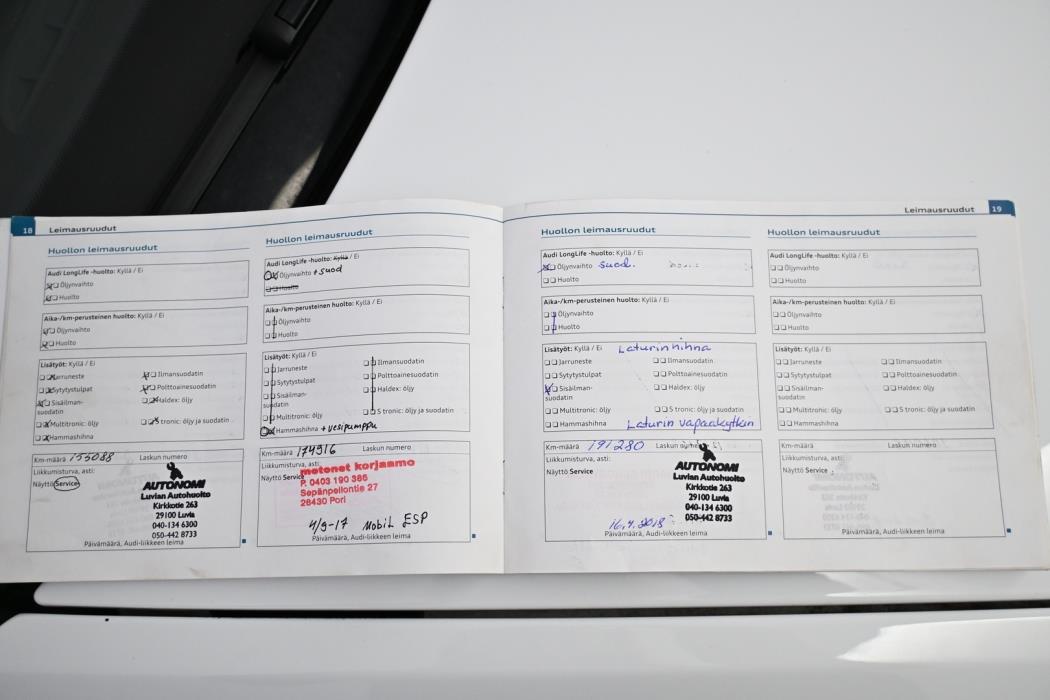 18 Leimausruudut
Huollon leimausruudut
Audi LongLife -huolto: Kyllä / Ei
Öljynvaihto
Huolto
Aika-/km-perusteinen huolto: Kyllä / Ei
Öljynvaihto
Huolto
Lisätyöt: Kyllä / Ei
Jarruneste
Ilmansuodatin
Sytytystulpat
Polttoainesuodatin
Sisäilman-
suodatin
Haldex: öljy
Multitronic: öljy
S tronic: öljy ja suodatin
Hammashihna
Km-määrä 155088 Laskun numero
Liikkumisturva, asti:
Näyttö Service
AUTONOMI
Luvian Autohuolto
Kirkkotie 263
29100 Luvia
040-134 6300
050-442 8733
Päivämäärä, Audi-liikkeen leima
Huollon leimausruudut
Audi LongLife -huolto: Kyllä / Ei
Öljynvaihto + suod
Huolto
Aika-/km-perusteinen huolto: Kyllä / Ei
Öljynvaihto
Huolto
Lisätyöt: Kyllä / Ei
Jarruneste
Ilmansuodatin
Sytytystulpat
Polttoainesuodatin
Sisäilman-
suodatin
Haldex: öljy
Multitronic: öljy
S tronic: öljy ja suodatin
Hammashihna + vesipumppu
Km-määrä 174916 Laskun numero
Liikkumisturva, asti:
Näyttö Service
motonet korjaamo
P. 0403 190 386
Sepänpellontie 27
28430 Pori
4/9-17 Mobil ESP
Päivämäärä, Audi-liikkeen leima
Leimausruudut 19
Huollon leimausruudut
Audi LongLife -huolto: Kyllä / Ei
Öljynvaihto suod.
Huolto
Aika-/km-perusteinen huolto: Kyllä / Ei
Öljynvaihto
Huolto
Lisätyöt: Kyllä / Ei Laturin hihna
Jarruneste
Ilmansuodatin
Sytytystulpat
Polttoainesuodatin
Sisäilman-
suodatin
Haldex: öljy
Multitronic: öljy
S tronic: öljy ja suodatin
Hammashihna Laturin vapaakytkin
Km-määrä 191280 Laskun numero
Liikkumisturva, asti:
Näyttö Service
AUTONOMI
Luvian Autohuolto
Kirkkotie 263
29100 Luvia
040-134 6300
050-442 8733
16.4.2018
Päivämäärä, Audi-liikkeen leima
Huollon leimausruudut
Audi LongLife -huolto: Kyllä / Ei
Öljynvaihto
Huolto
Aika-/km-perusteinen huolto: Kyllä / Ei
Öljynvaihto
Huolto
Lisätyöt: Kyllä / Ei
Jarruneste
Ilmansuodatin
Sytytystulpat
Polttoainesuodatin
Sisäilman-
suodatin
Haldex: öljy
Multitronic: öljy
S tronic: öljy ja suodatin
Hammashihna
Km-määrä Laskun numero
Liikkumisturva, asti:
Näyttö Service
Päivämäärä, Audi-liikkeen leima